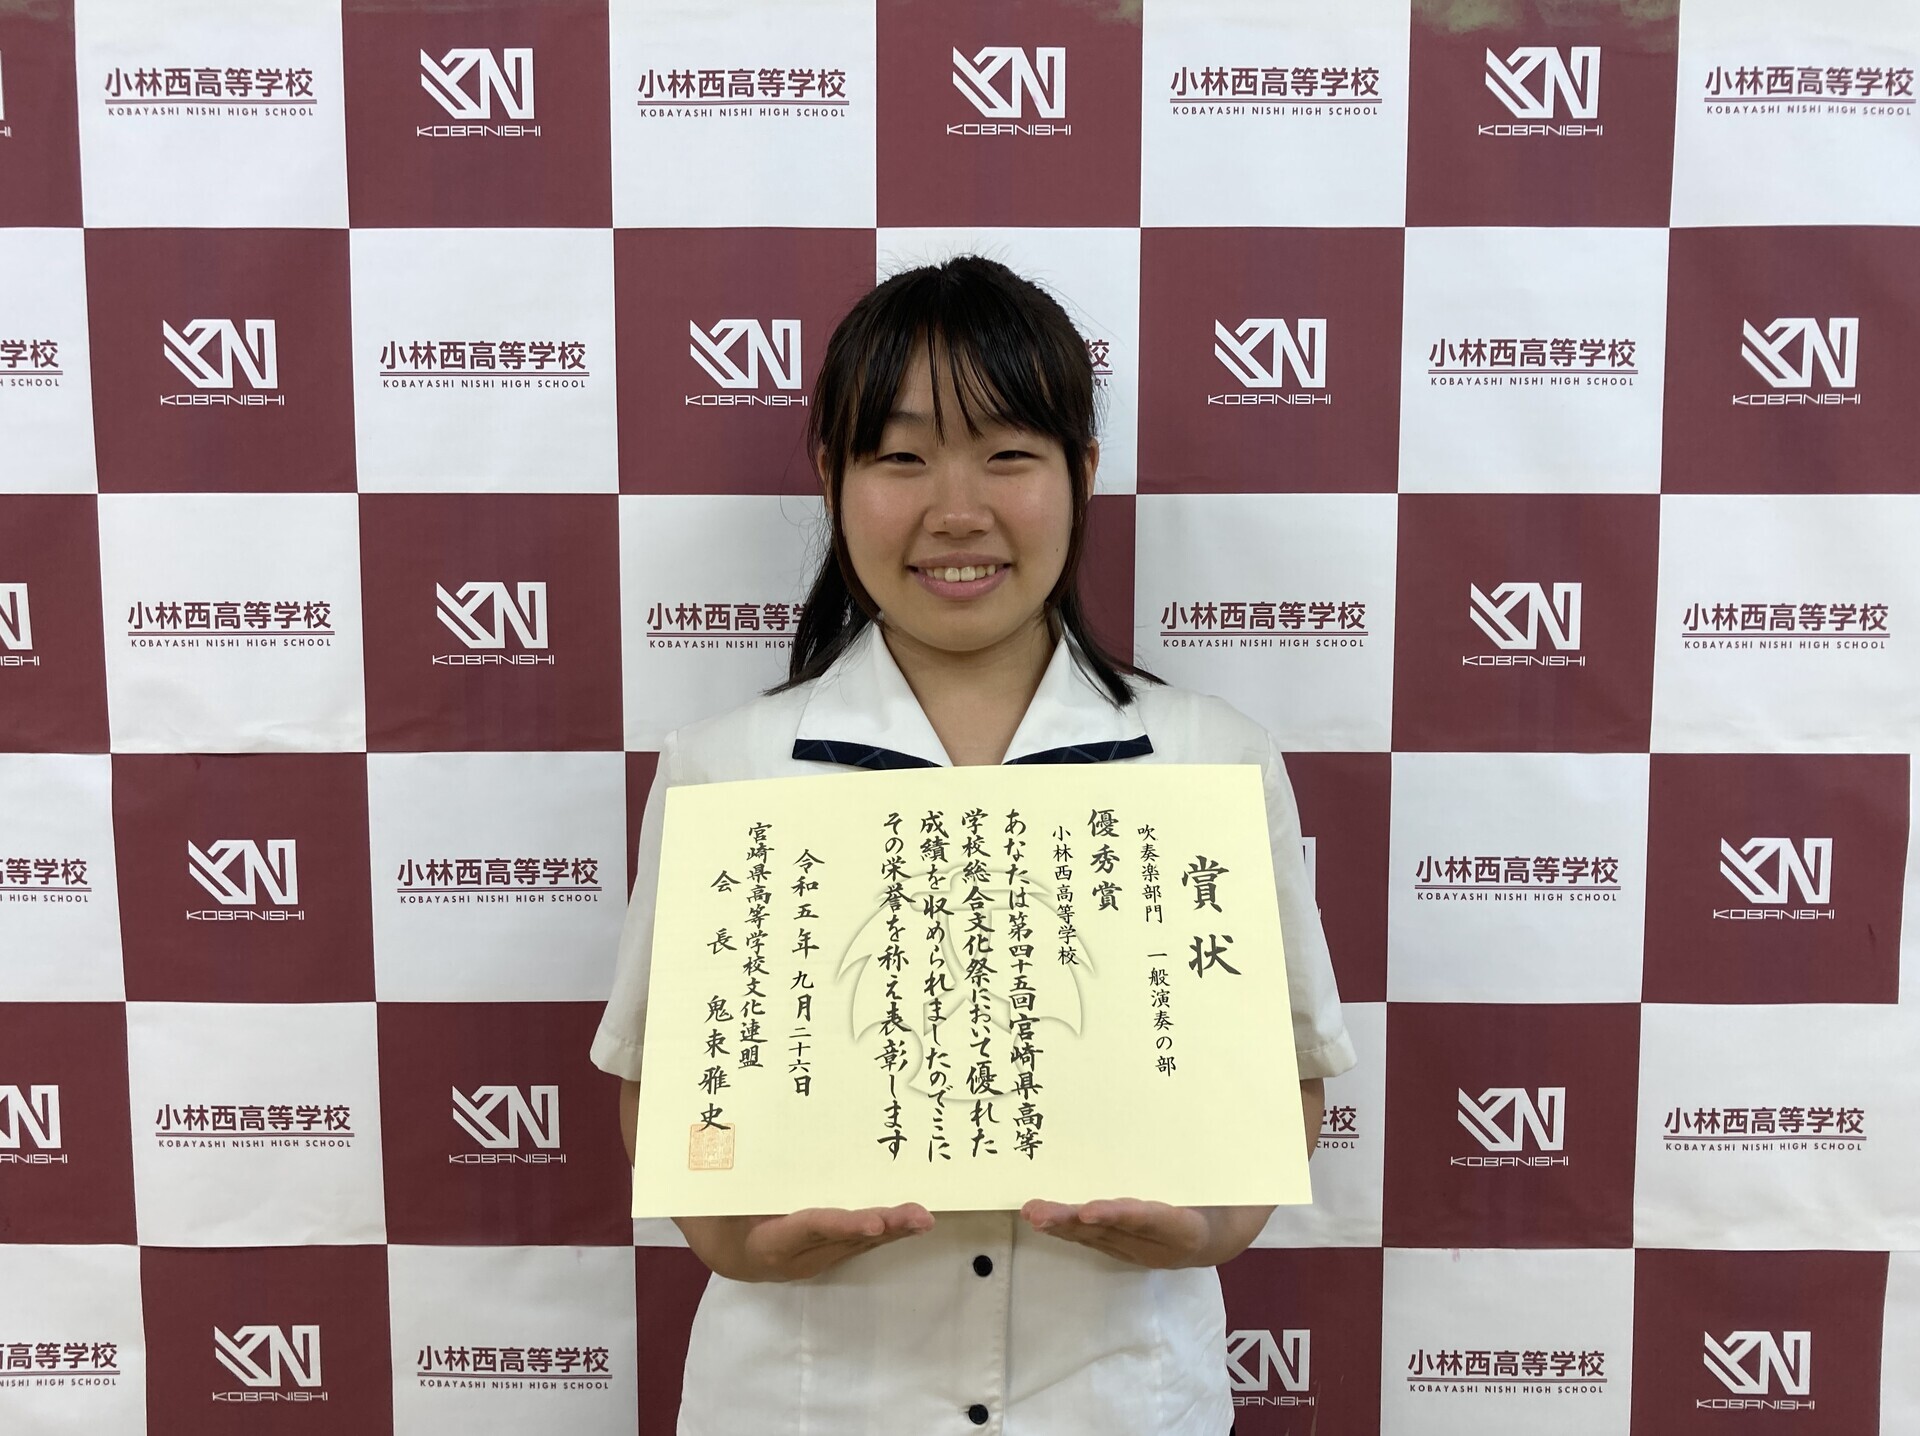 小林西高等学校
KOBAYASHI NISHI HIGH SCHOOL
KN
KOBANISHI
賞状
吹奏楽部門 一般演奏の部
優秀賞
小林西高等学校
あなたは第四十五回宮崎県高等
学校総合文化祭において優れた
成績を収められましたのでここに
その栄誉を称え表彰します
令和五年九月二十六日
宮崎県高等学校文化連盟
会長 鬼束雅史